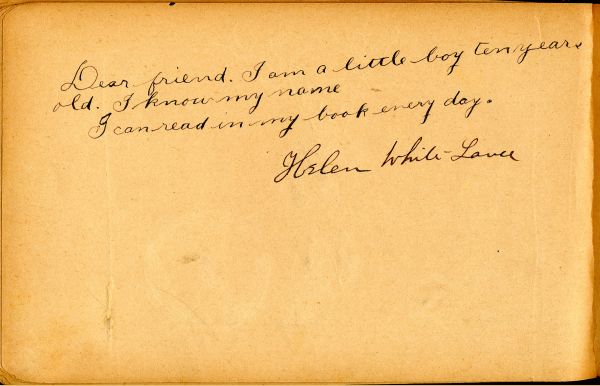 Dear friend. I am a little boy ten years
old. I know my name
I can read in my book every day.
Helen White-Lance